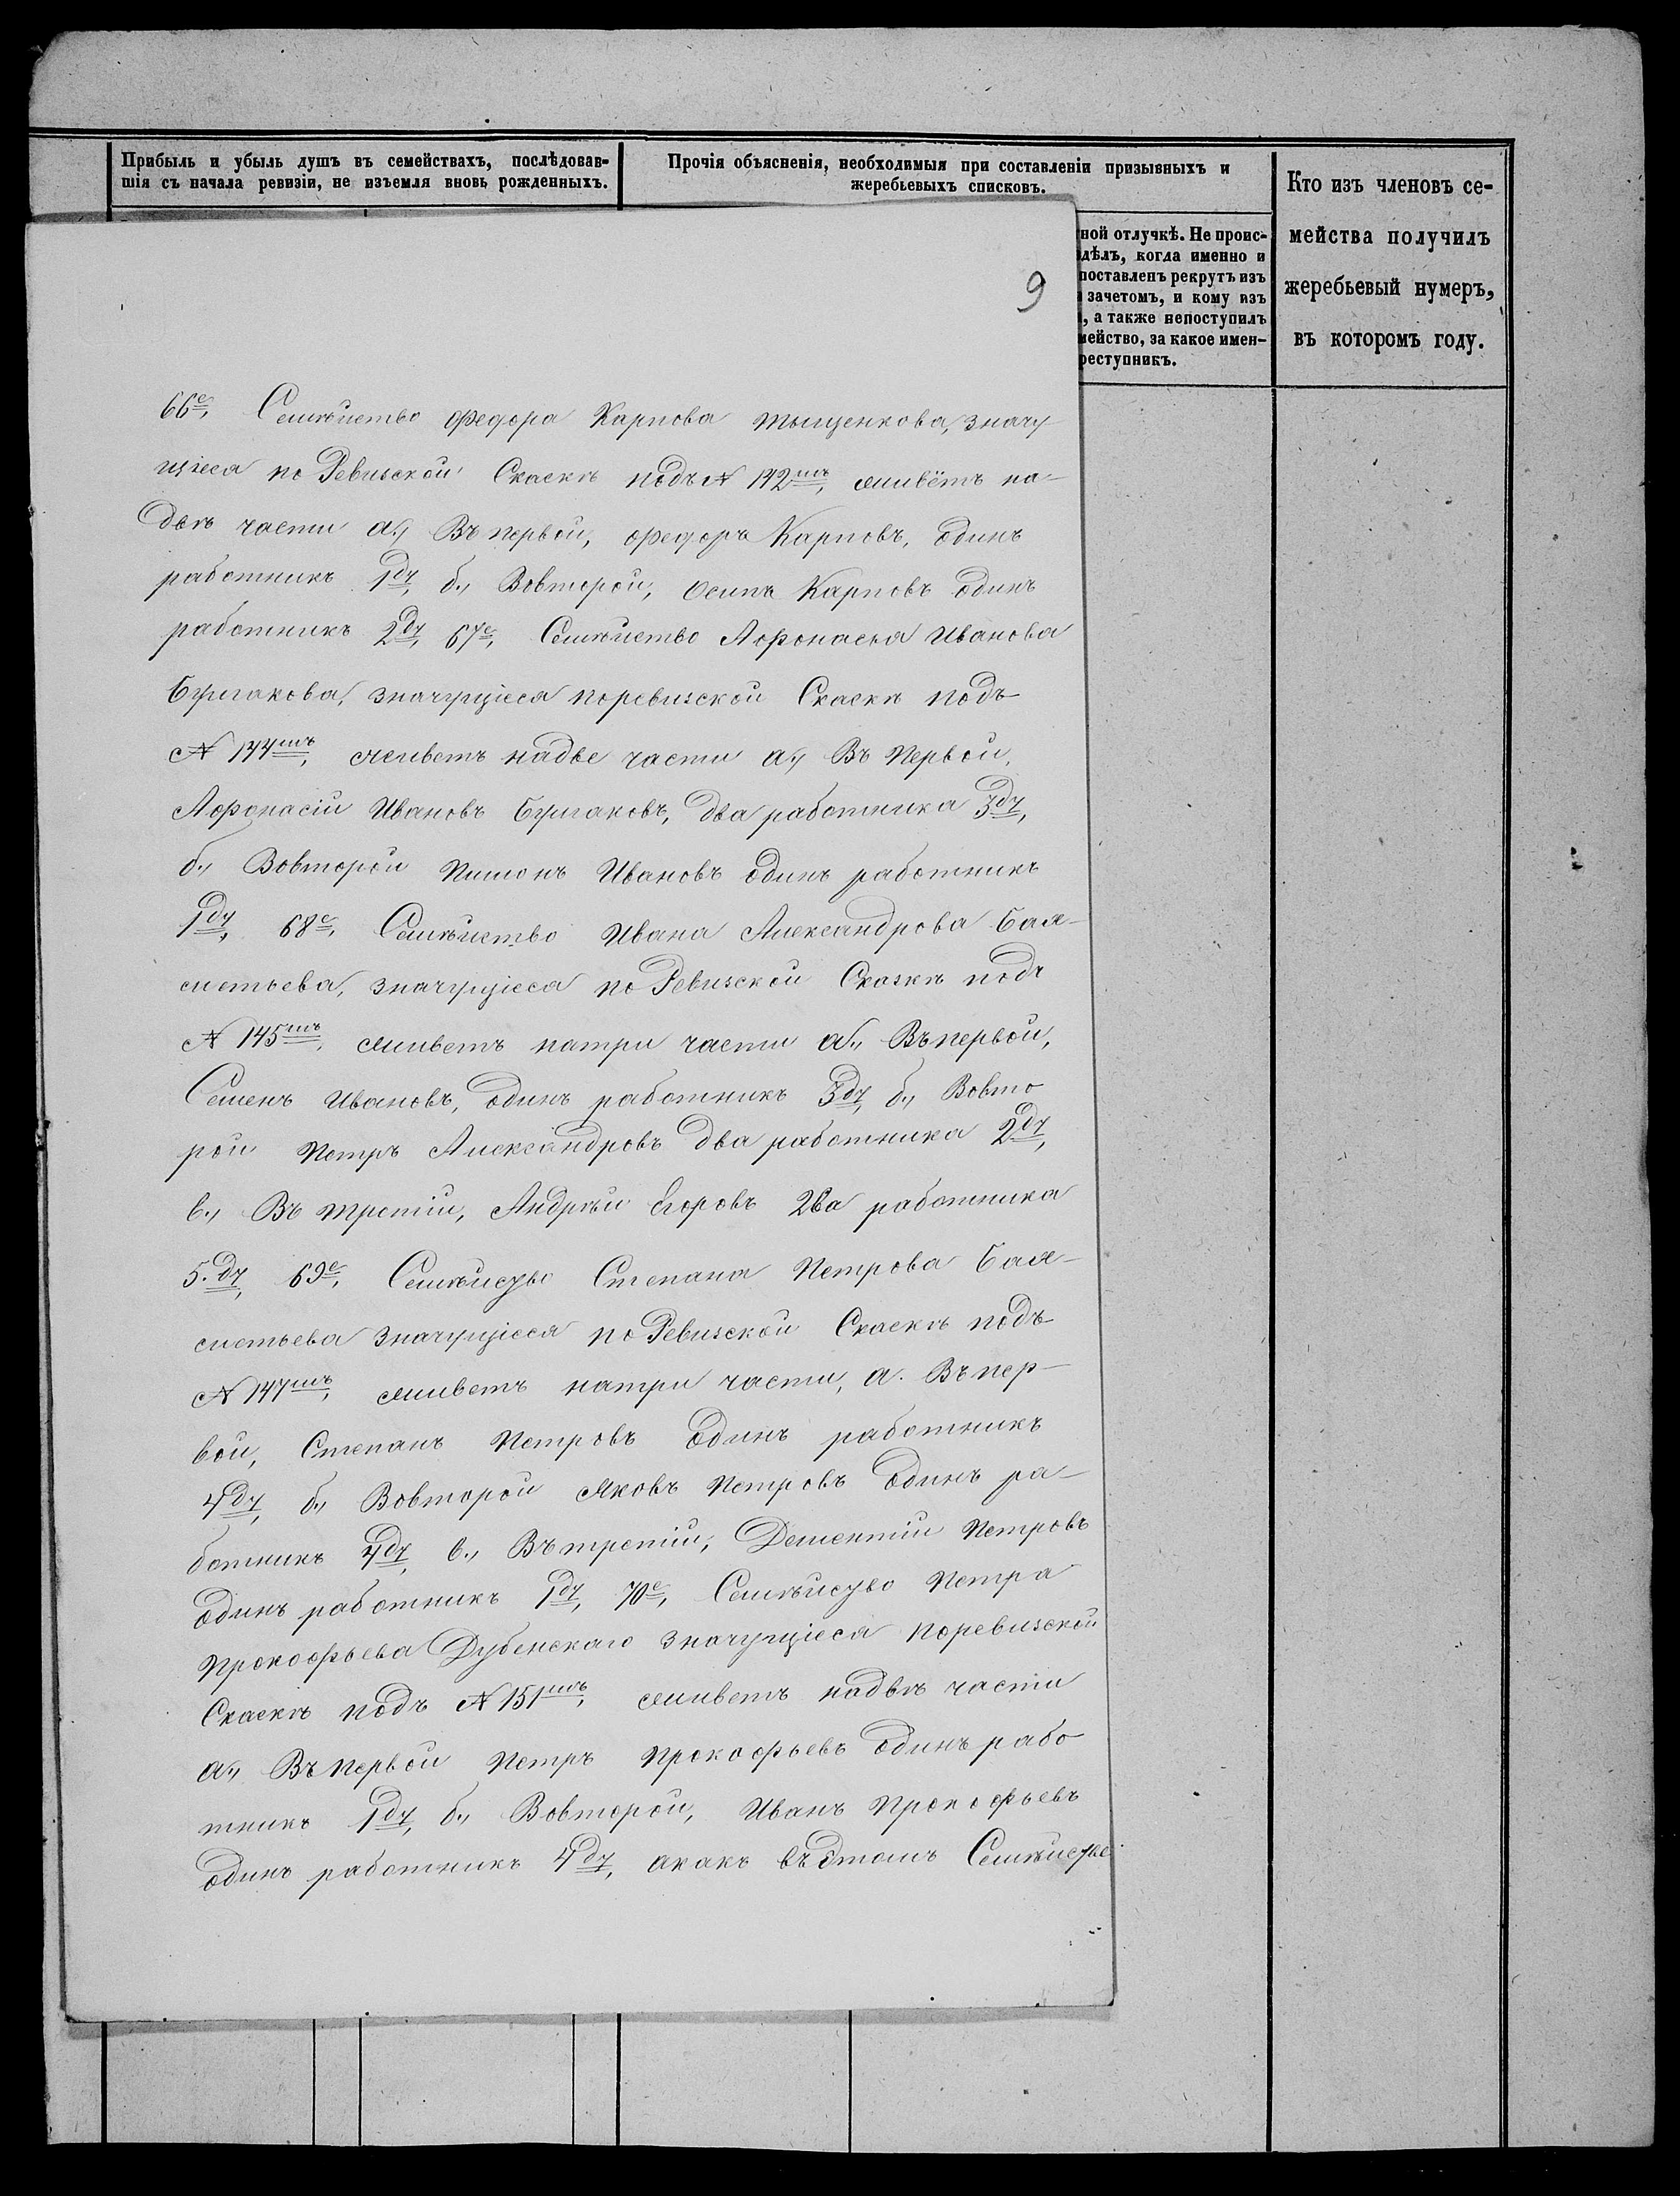 Прибыль и убыль душъ въ семействахъ, послѣдовав-
шія съ начала ревизіи, не изъемля вновь рожденныхъ.
Прочія объясненія, необходимыя при составленіи призывныхъ и
жеребьевыхъ списковъ.
Кто изъ членовъ се-
мейства получилъ
жеребьевый нумеръ,
въ которомъ году.
ной отлучкѣ. Не проис-
дѣлъ, когда именно и
поставленъ рекрутъ изъ
зачетомъ, и кому изъ
, а также непоступилъ
мейство, за какое имен-
реступникъ.
9
66е, Семѣйство Федора Карпова Тыщенкова, значу-
щіеся по Ревизской Скаскѣ подъ № 142мъ, живётъ на-
двѣ части а., Въ первой, Федоръ Карповъ, один
работникъ 1ду, б., Вовторой, Осипъ Карповъ один
работникъ 2ду, 67е, Семѣйство Афонасья Иванова
значущіеся поревизской Скаскѣ подъ
№ 144мъ, живетъ надве части а., Въ Первой,
Афонасій Ивановъ два работника 3ду,
б., Вовторой Ивановъ один работникъ
1ду, 68е, Семѣйство Ивана Александрова
значущіеся по Ревизской Сказкѣ подъ
№ 145мъ, живетъ натри части а., Въпервой,
Семенъ Ивановъ, одинъ работникъ 3ду, б., Вовто
рой Петръ Александровъ два работника 2ду,
в., Въ третій, Андрѣй Егоровъ 2ва работника
5.ду, 69е, Семѣйство Степана Петрова
значущіеся по Ревизской Скаскѣ подъ
№ 147мъ, живетъ натри части, а. Въ пер-
вой, Степанъ Петровъ один работникъ
4ду, б., Вовторой Яковъ Петровъ одинъ ра-
ботникъ 4ду, в., Въ третій, Дементій Петровъ
одинъ работникъ 1ду, 70е, Семѣйство Петра
Прокофьева Дубенскаго значущіеся поревизской
Скаскѣ подъ № 151мъ, живетъ надвѣ части
а., Въ первой Петръ Прокофьевъ одинъ рабо
тникъ 1ду, б., Вовторой, Иванъ Прокофьевъ
одинъ работникъ 4ду, акакъ въ етомъ Семѣйстве